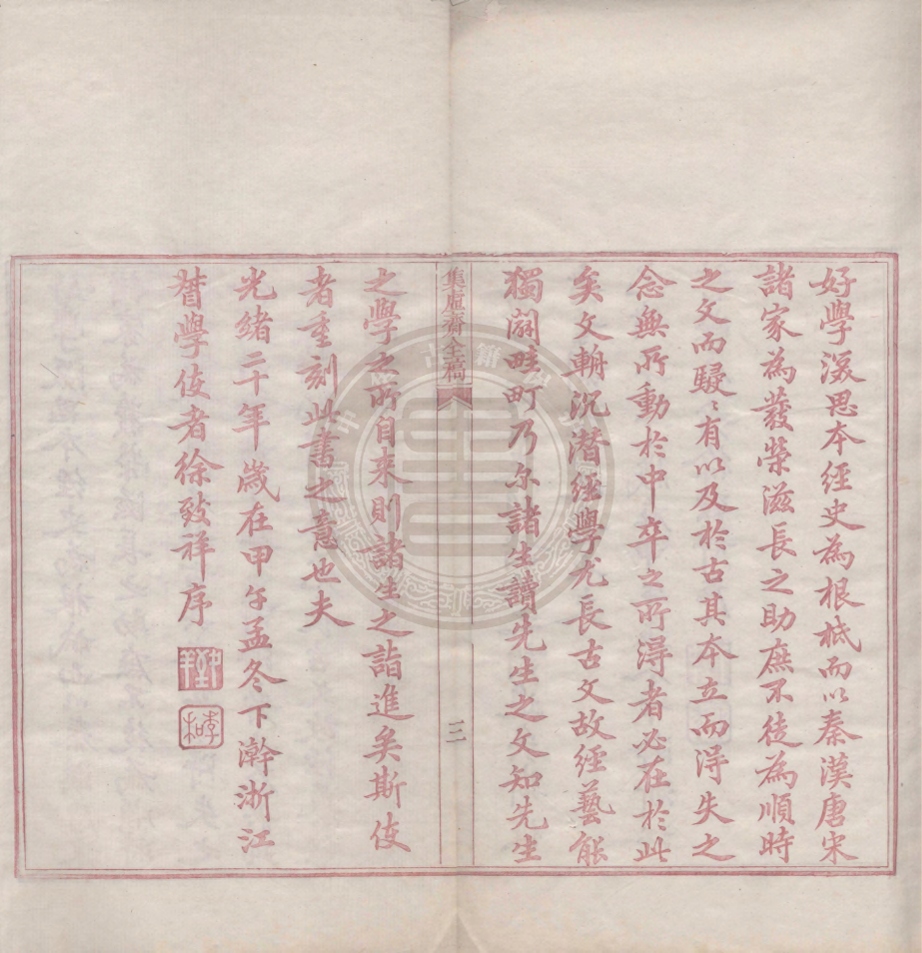 好學深思本經史為根柢而以秦漢唐宋
諸家為發榮滋長之助庶不徒為順時
之文而駸〻有以及於古其本立而得失之
念無所動於中卒之所得者必在於此
矣文輈沉潛經學尤長古文故經藝能
獨闢畦町乃尔諸生讀先生之文知先生
集虛齋全稿
三
之學之所自來則諸生之詣進矣斯使
者重刻此書之意也夫
光緒二十年歲在甲午孟冬下澣浙江
督學使者徐致祥序